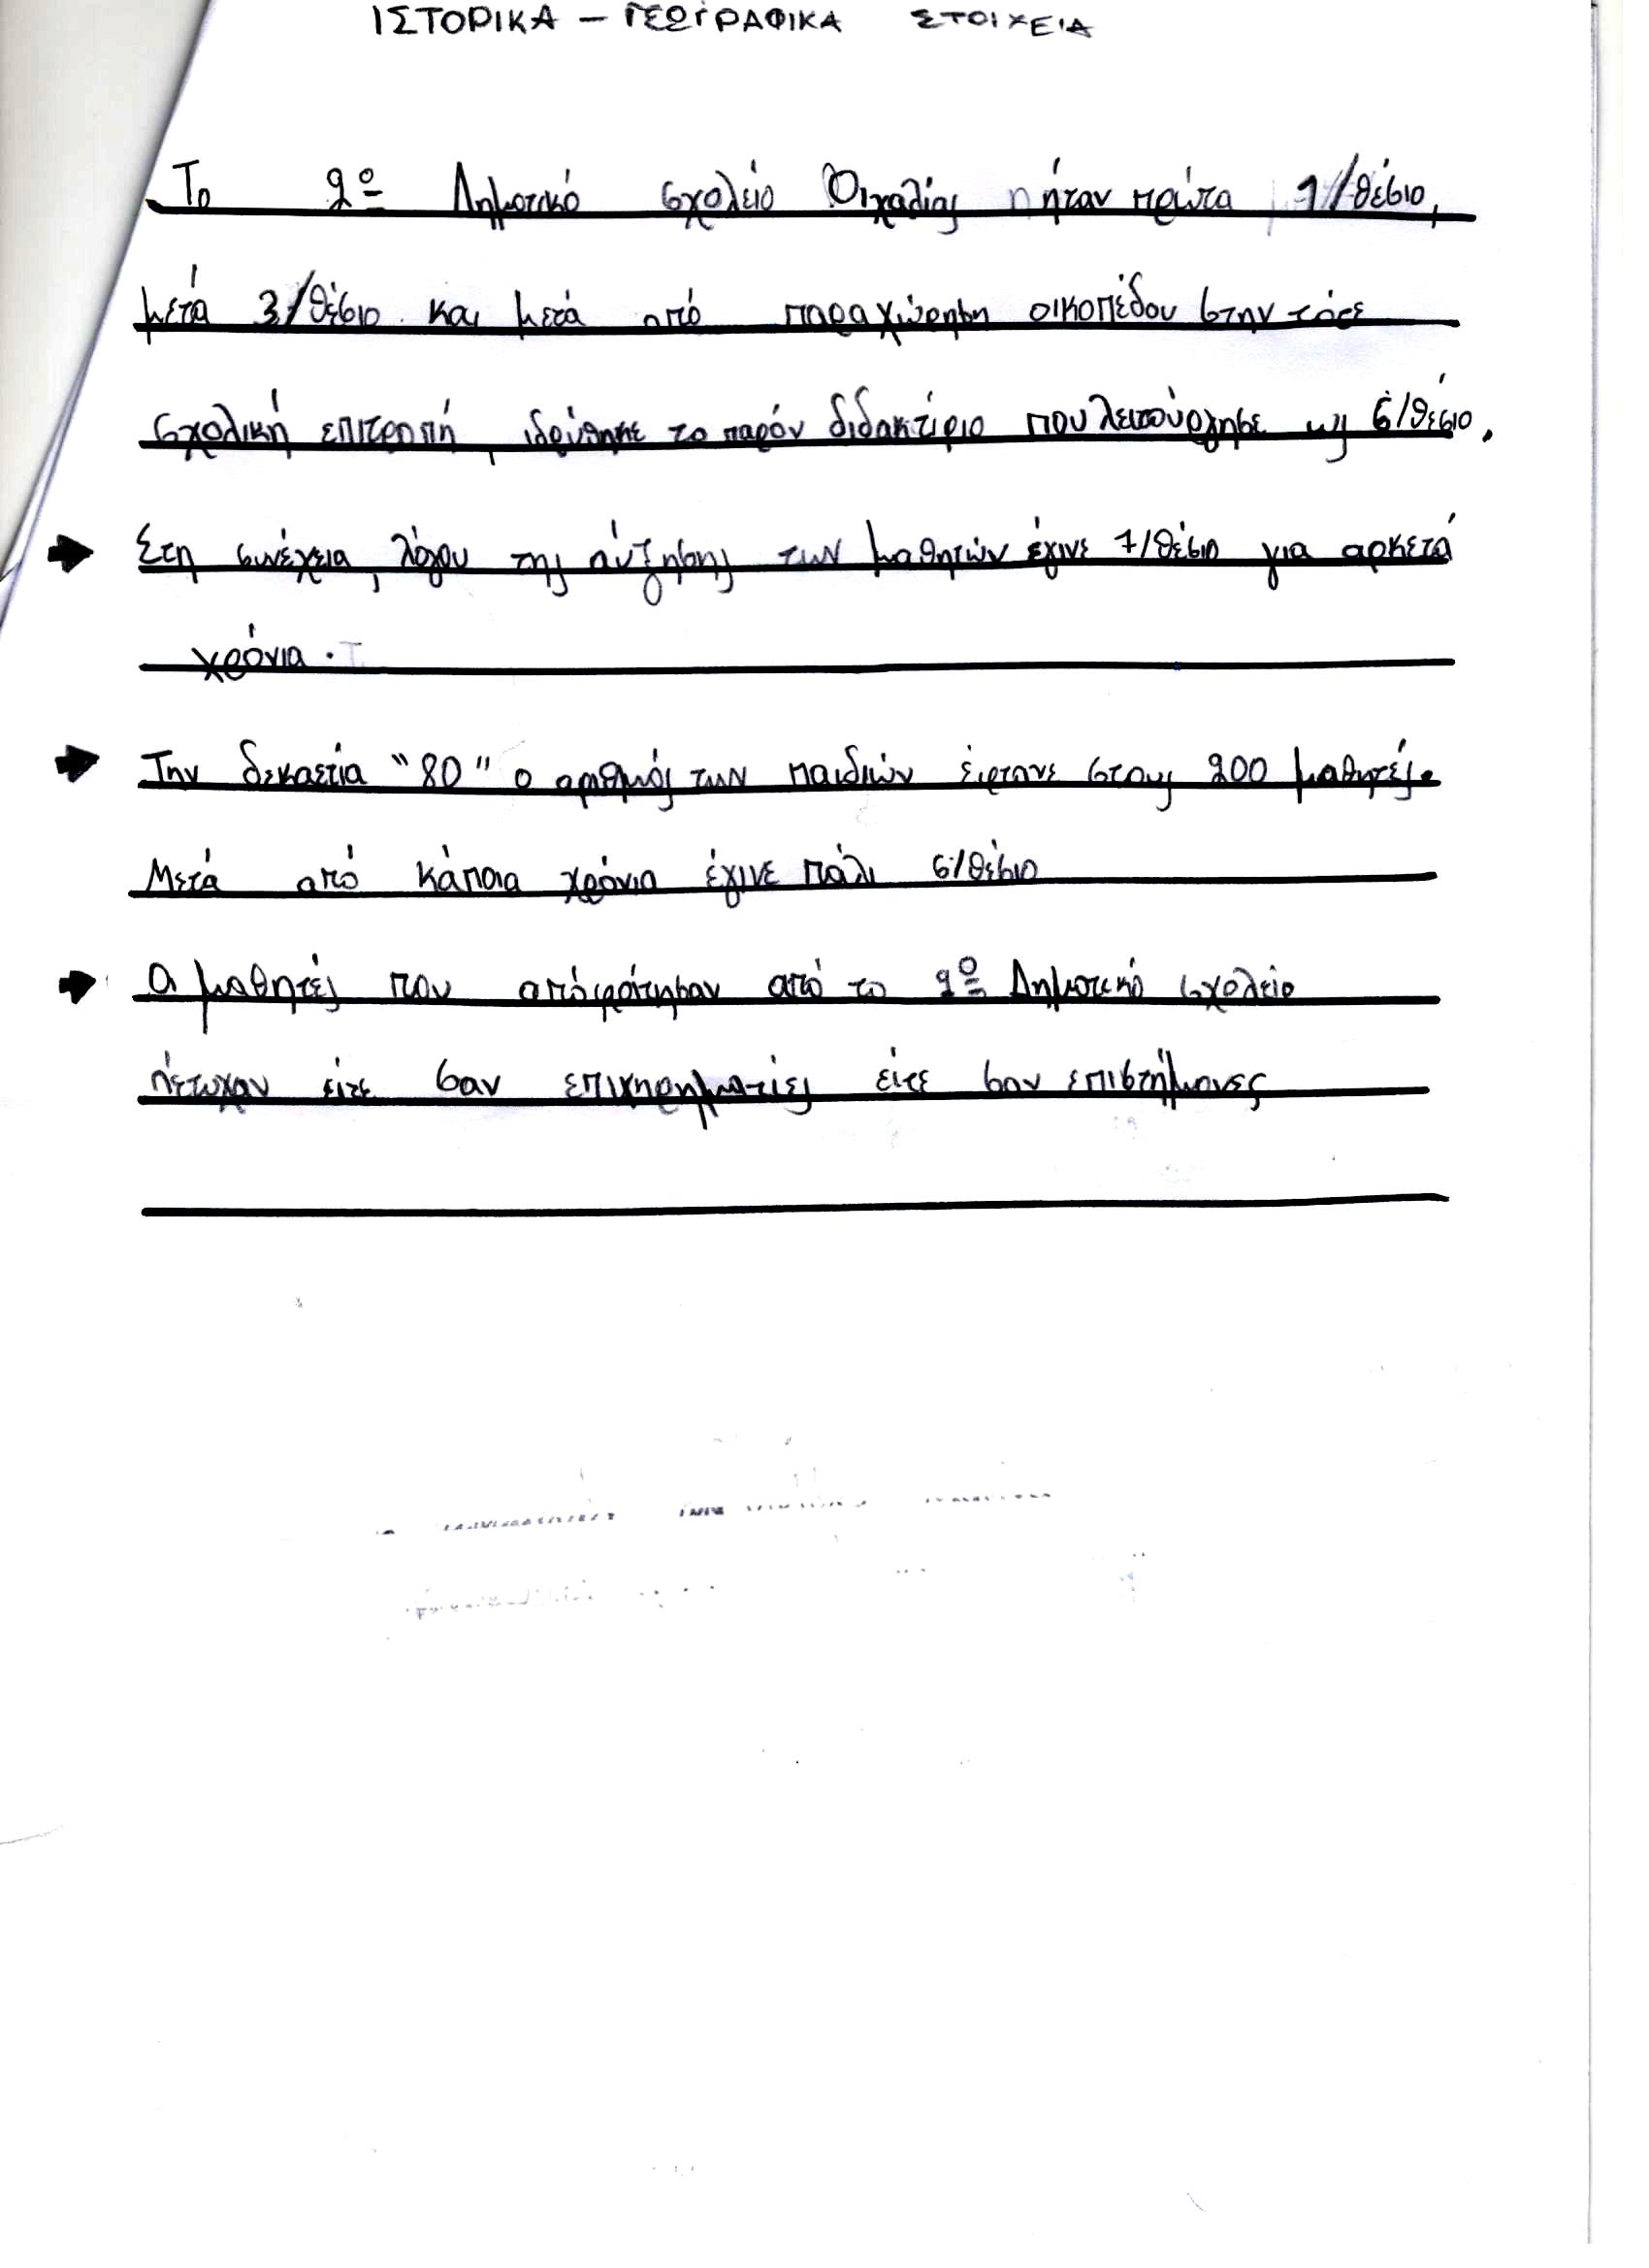 ΙΣΤΟΡΙΚΑ – ΓΕΩΓΡΑΦΙΚΑ ΣΤΟΙΧΕΙΑ
Το 2ο Δημοτικό σχολείο Οιχαλίας ήταν πρώτα 1/θέσιο,
μετά 3/θέσιο και μετά από παραχώρηση οικοπέδου στην τότε
σχολική επιτροπή, ιδρύθηκε το παρόν διδακτίριο που λειτούργησε ως 6/θέσιο.
➔ Στη συνέχεια, λόγου της αύξησης των μαθητών έγινε 7/θέσιο για αρκετά
χρόνια.
➔ Την δεκαετία "80" ο αριθμός των παιδιών έφτανε στους 200 μαθητές.
Μετά από κάποια χρόνια έγινε πάλι 6/θέσιο
➔ Οι μαθητές που απόφοίτησαν από το 2ο Δημοτικό σχολείο
πέτυχαν είτε σαν επιχηρηματίες είτε σαν επιστήμονες